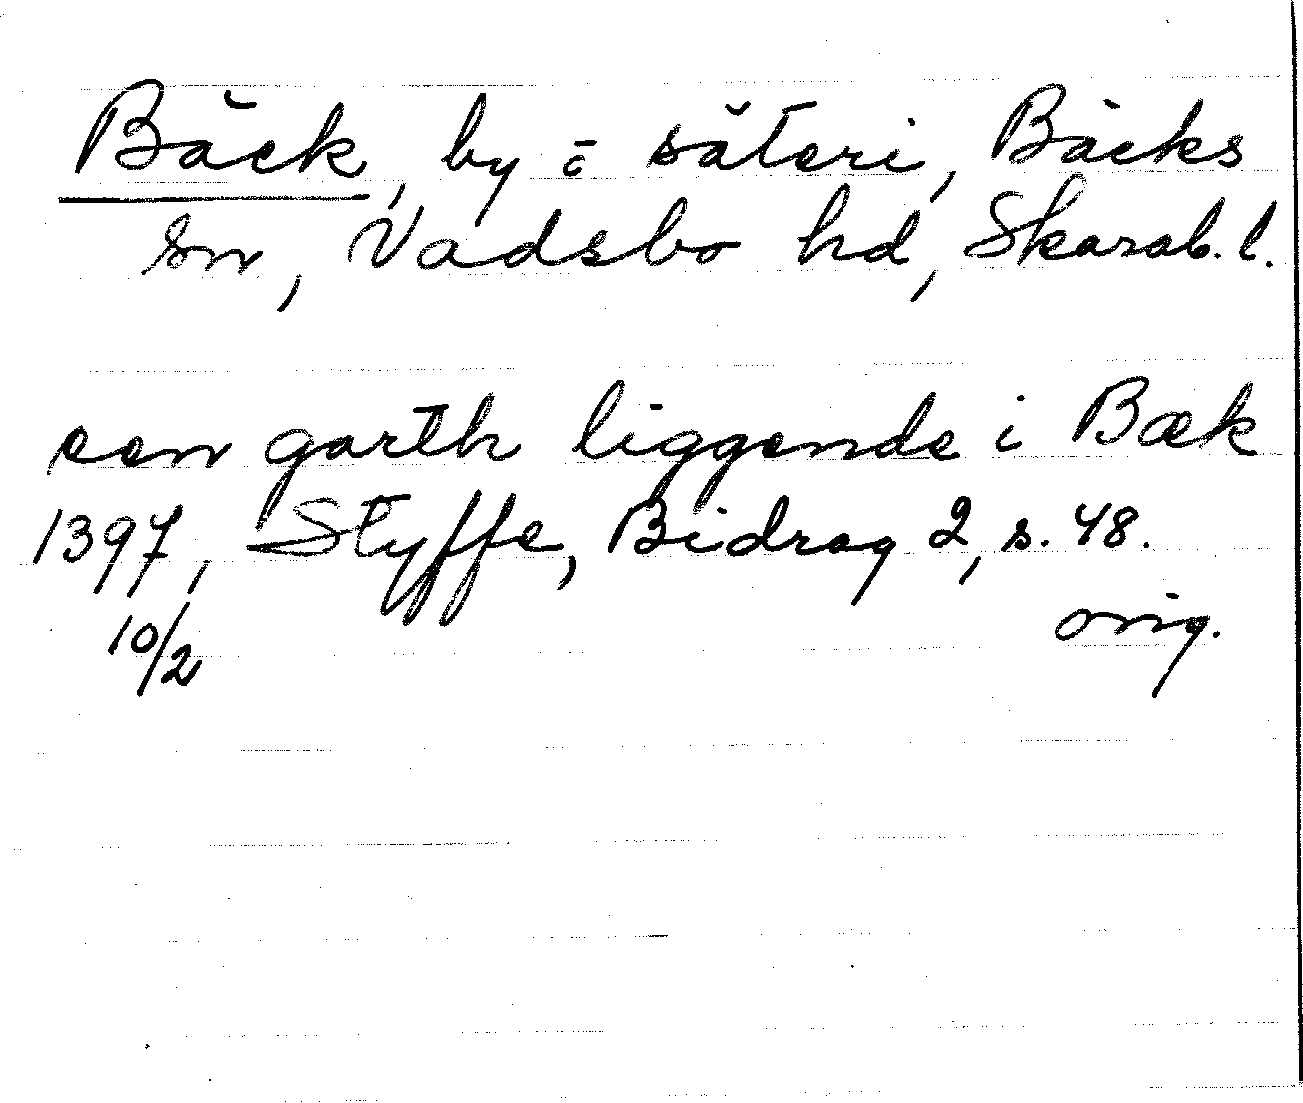 Bäck, by o. säteri, Bäcks
sn, Vadsbo hd, Skarab. l.
een garth liggende i Bæk
1397, Styffe, Bidrag 2, s. 48.
10/2 orig.